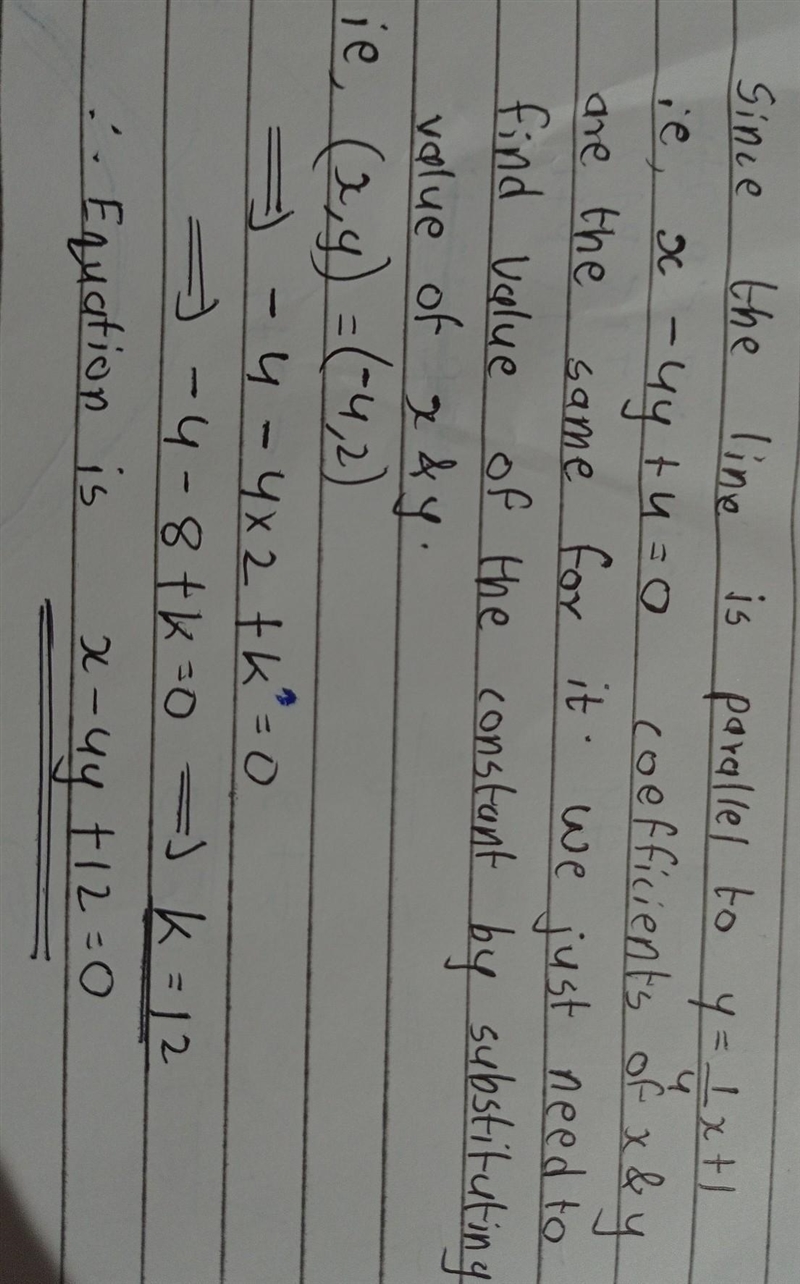 Since the line is parallel to y = 1/4 x + 1
ie, x - 4y + 4 = 0 coefficients of x & y
are the same for it. we just need to
find value of the constant by substituting
value of x & y.
ie, (x, y) = (-4, 2)
⟹ - 4 - 4 × 2 + k = 0
⟹ - 4 - 8 + k = 0 ⟹ k = 12
∴ Equation is x - 4y + 12 = 0